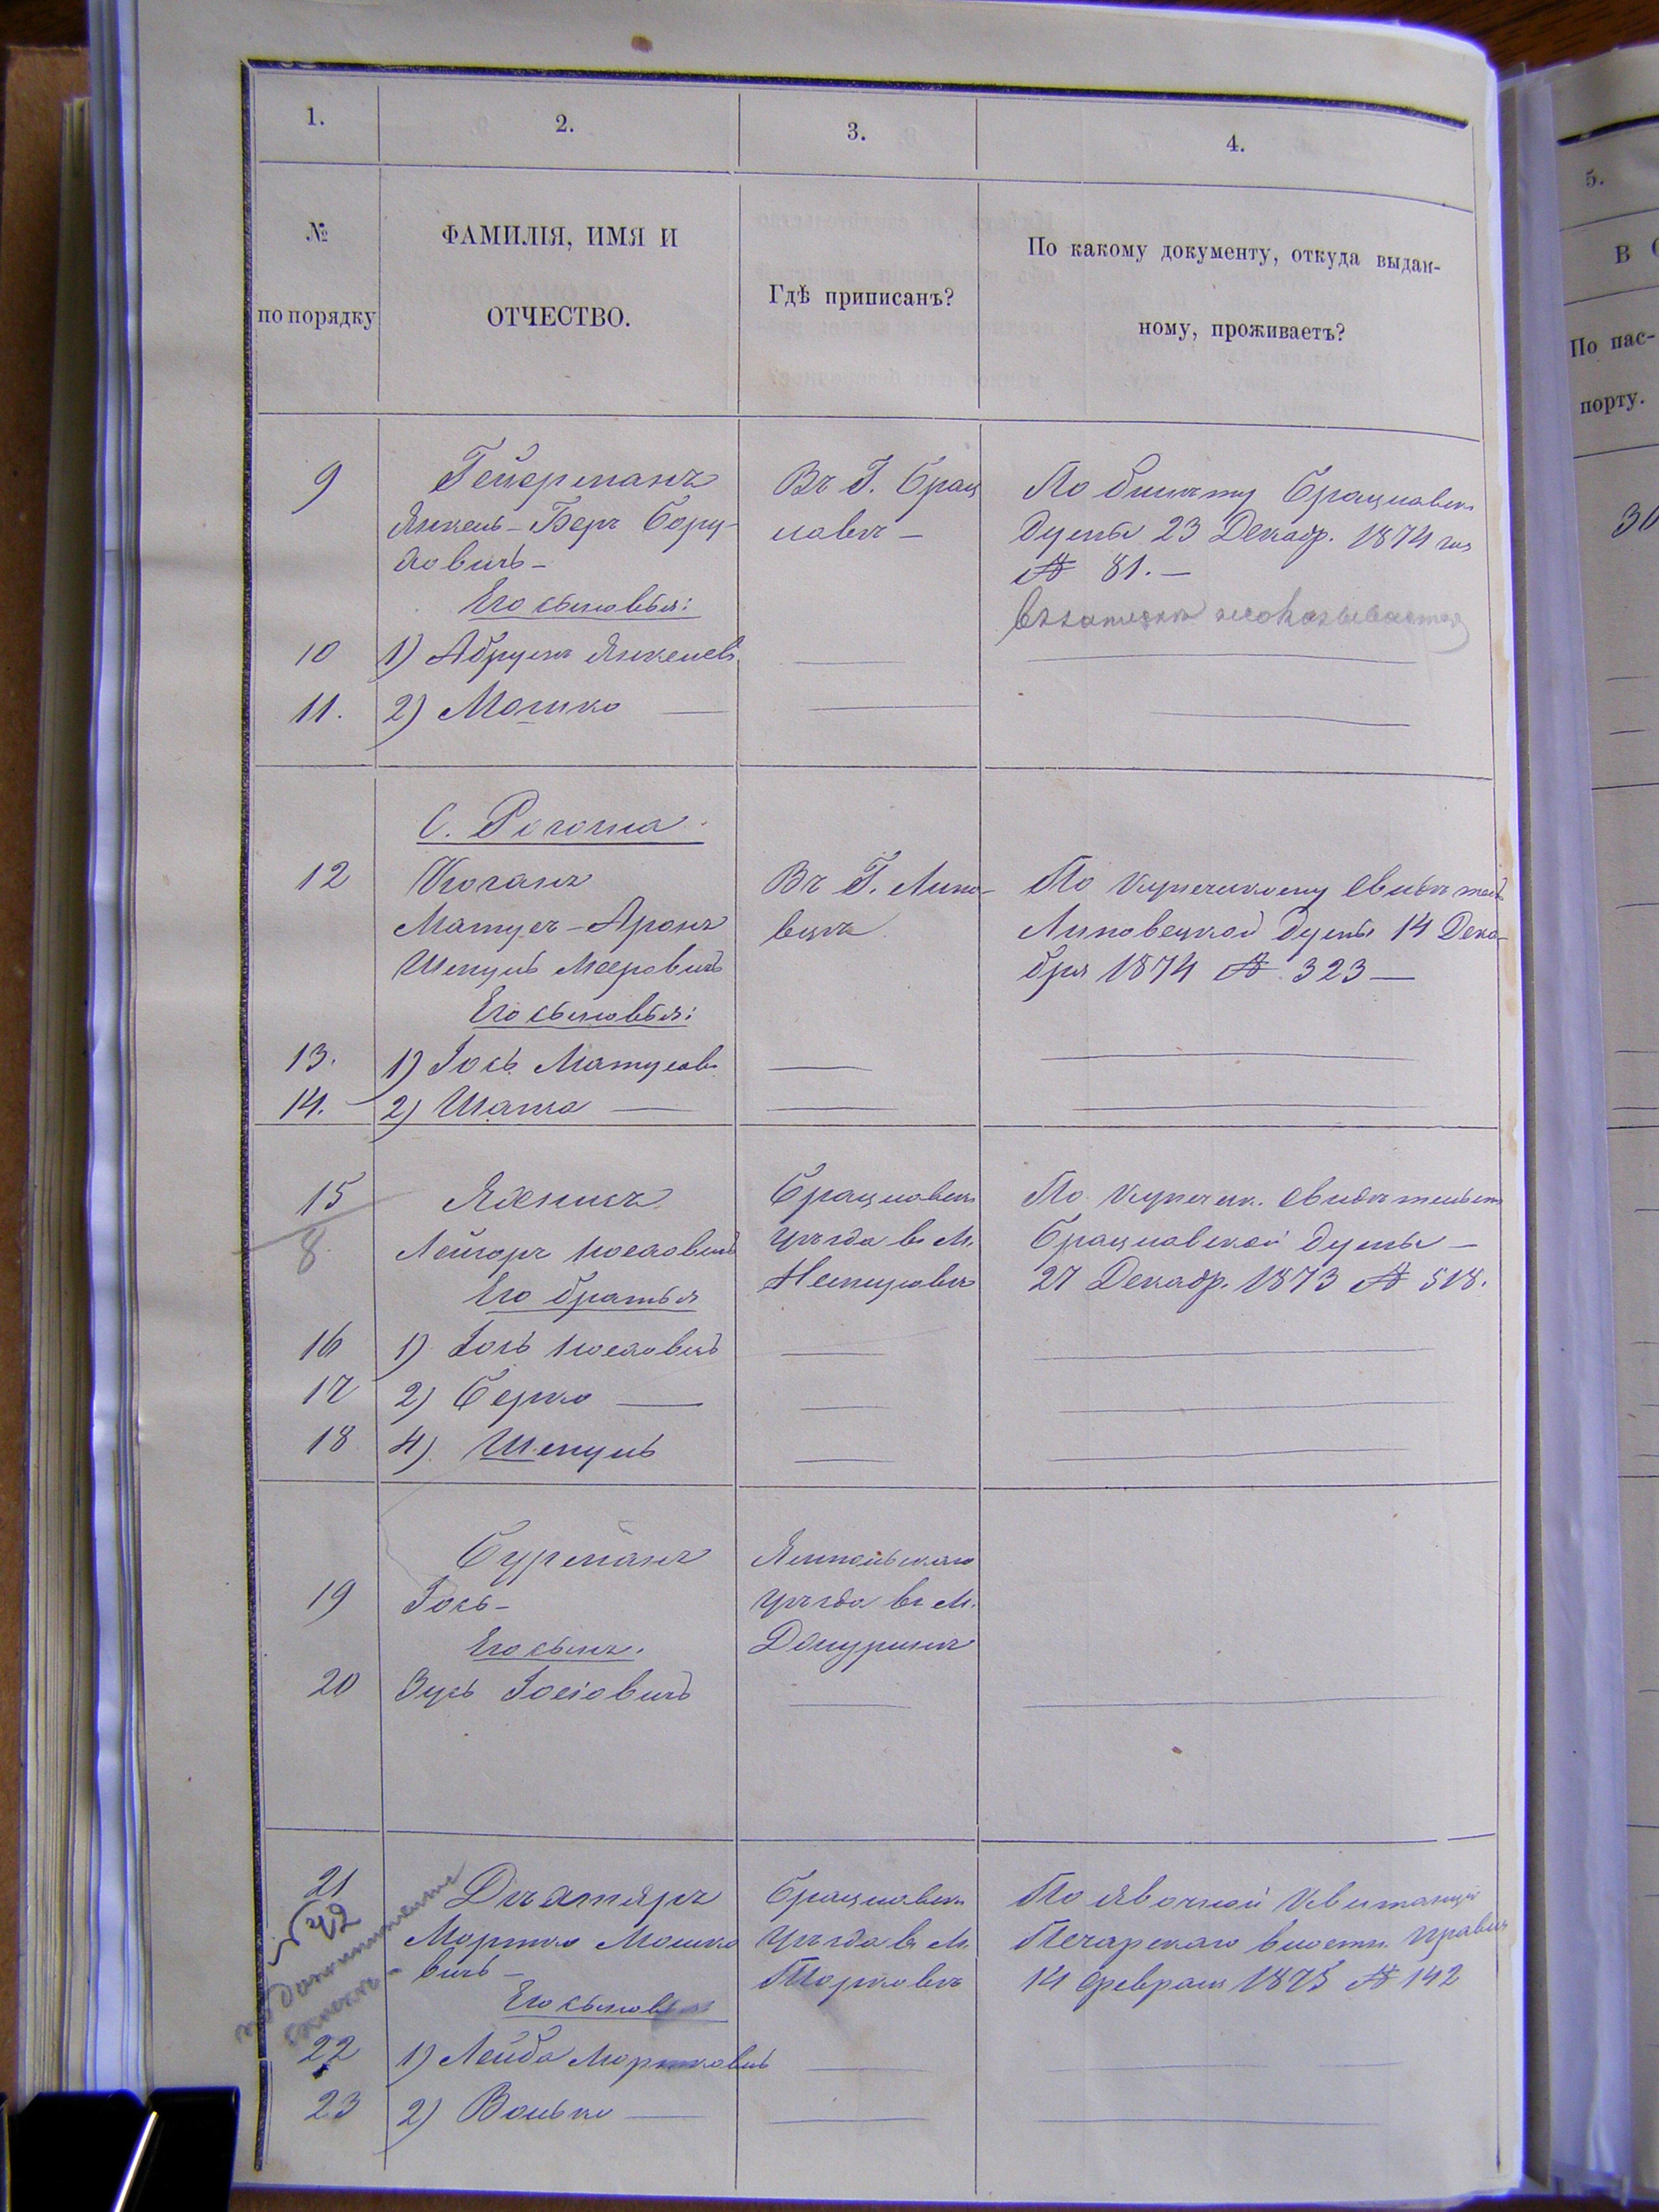 1.
2.
3.
4.
№
по порядку
ФАМИЛІЯ, ИМЯ И
ОТЧЕСТВО.
Гдѣ приписанъ?
По какому документу, откуда выдан-
ному, проживаетъ?
9
Гейерманъ
Янкель-Беръ Бору-
ховичъ-
Въ Г. Брац
лавѣ -
По билету Брацлавск
Думы 23 Декабр. 1874 год
№ 81. -
Его сыновья:
10
1) Абрумъ Янкелев
11.
2) Мошко
С. Рогозна
12
Коганъ
Матусъ-Аронъ
Шмуль Меровичъ
Въ Г. Липо-
вцѣ
По купеческому свидѣтел
Липовецкой Думы 14 Дека-
бря 1874 № 323
Его сыновья:
13.
1) Іось Матусов
14.
2) Шама
15
8
Лейзоръ Иосіовичъ
Брацлавск
уѣзда в м.
Немировѣ
По купеческ. свидѣтельст
Брацлавской Думы -
27 Декабр. 1873 № 518.
Его братья
16
1) Іось Иосіовичъ
17
2) Берко
18
4) Шмуль
Бурманъ
Ямпольскаго
19
Іось-
уѣзда в м.
Его сынъ.
20
Зусь Іосіовичъ
21
42
Дѣхтяръ
Мортко Мошко
вичъ -
Брацлавск
уѣзда в м
Торковѣ
По явочной Квитанціи
Печарскаго волостн. Правл
14 февраля 1875 № 142
Его сыновья
22
1) Лейба Мортковичъ
23
2) Волько
5.
В
По пас-
порту.
30